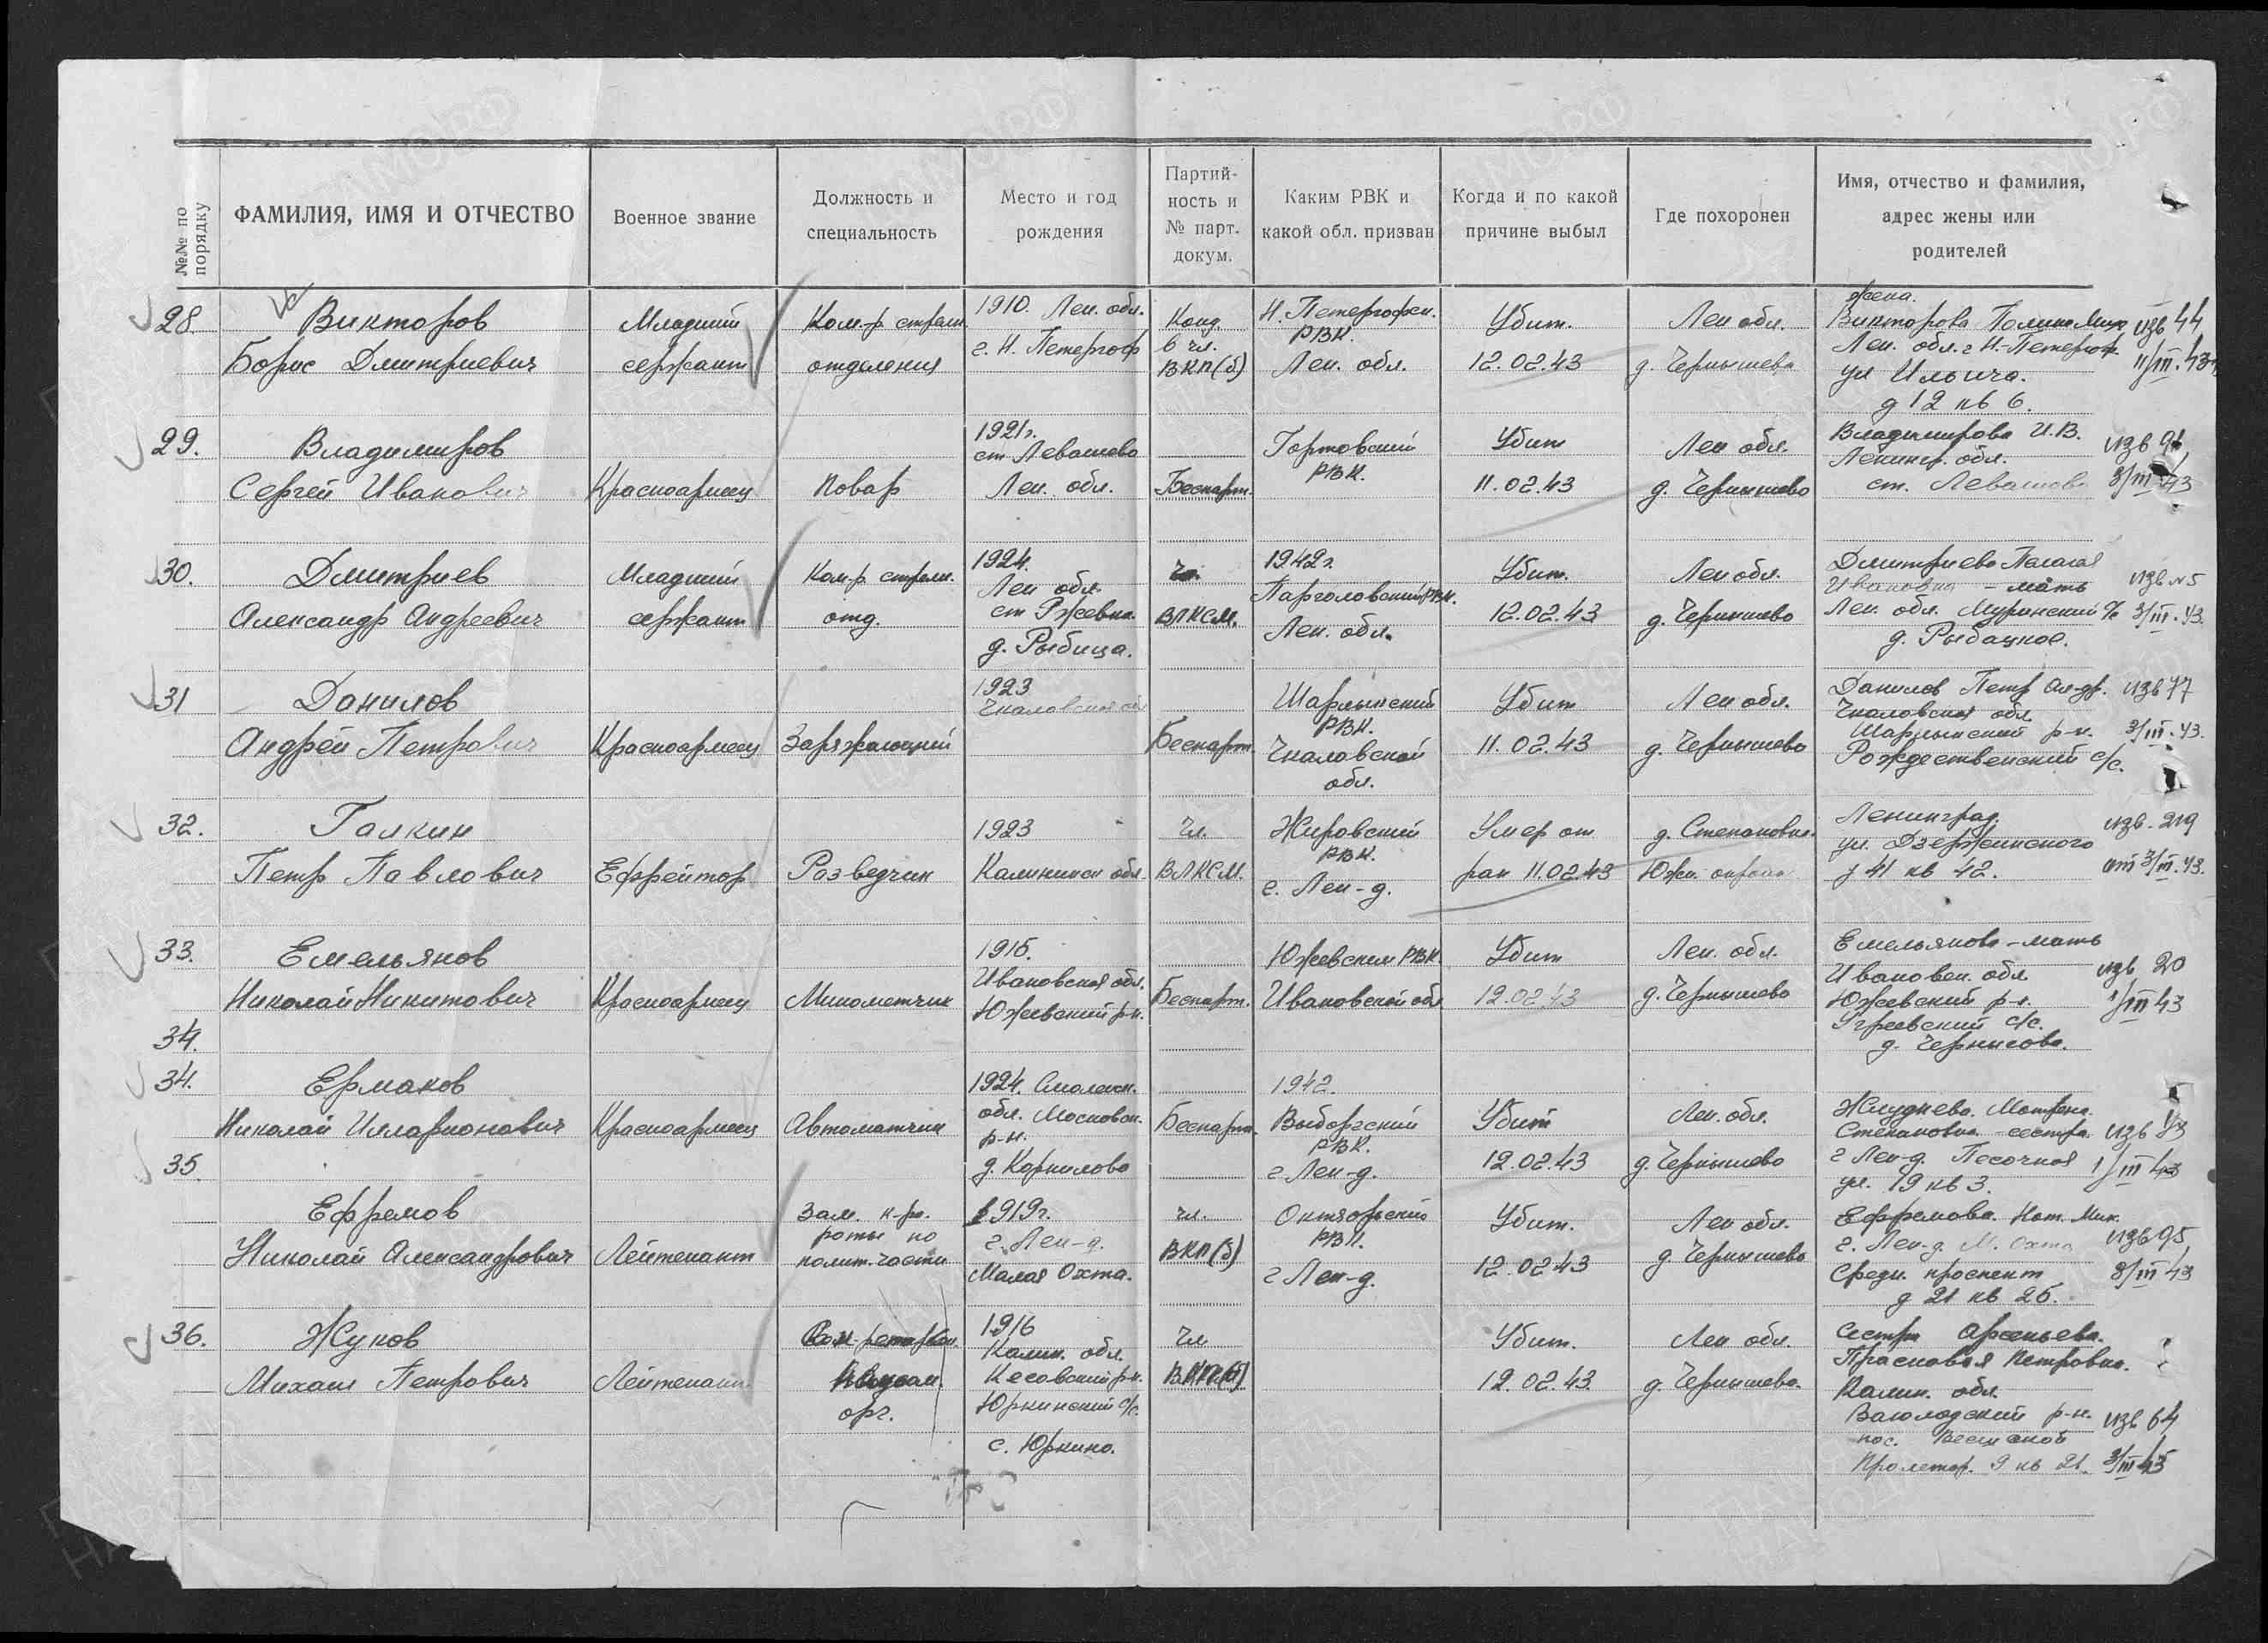 №№ по порядку
ФАМИЛИЯ, ИМЯ И ОТЧЕСТВО
Военное звание
Должность и
специальность
Место и год
рождения
Партий-
ность и
№ парт.
докум.
Каким РВК и
какой обл. призван
Когда и по какой
причине выбыл
Где похоронен
Имя, отчество и фамилия,
адрес жены или
родителей
28.
Викторов
Борис Дмитриевич
Младший
сержант
Ком-р стрелк.
отделения
1910. Лен. обл.
г. Н. Петергоф
Канд.
в чл.
ВКП(б)
Н. Петергофск.
РВК.
Лен. обл.
Убит.
12.02.43
Лен обл.
д. Чернышева
жена.
Викторова Полина Мих
Лен. обл. г Н.-Петергоф.
ул Ильича.
д 12 кв 6.
изв 44
11/III.43
29.
Владимиров
Сергей Иванович
Красноармеец
Повар
1921г.
ст Левашево
Лен. обл.
Беспарт.
РВК.
Убит
11.02.43
Лен обл.
д. Чернышево
Владимирова И.В.
Ленингр. обл.
ст. Левашово
изв 91
3/III 43
30.
Дмитриев
Александр Андреевич
Младший
сержант
Ком-р стрелк.
отд.
1924.
Лен обл.
ст Ржевка.
д. Рыбица.
ВЛКСМ.
1942г.
Парголовский РВК.
Лен. обл.
Убит.
12.02.43
Лен обл.
д. Чернышево
Дмитриева Пелагея
Ивановна - мать
Лен. обл. Муринский с/с
д. Рыбацкое.
изв №5
3/III.43.
31
Данилов
Андрей Петрович
Красноармеец
Заряжающий
1923
Чкаловская обл
Беспарт.
Шарлыкский
РВК.
Чкаловской
обл.
Убит
11.02.43
Лен обл.
д. Чернышево
Данилов Петр Ал-др.
Чкаловская обл
Шарлыкский р-н.
Рождественский с/с.
изв 77
3/III.43.
32.
Галкин
Петр Павлович
Ефрейтор
Разведчик
1923
Калининск обл
Чл.
ВЛКСМ.
РВК.
г. Лен-д.
Умер от
ран 11.02.43
д. Степановка.
Южн. окраина
Ленинград.
ул. Дзержинского
д 41 кв 42.
изв. 219
от 3/III.43.
33.
Емельянов
Николай Никитович
Красноармеец
Минометчик
1915.
Ивановская обл.
Южевский р-н.
Беспарт.
Южевским РВК.
Ивановской обл
Убит
12.02.43
Лен. обл.
д. Чернышево
Емельянова - мать
Ивановск. обл.
Южевский р-н.
с/с.
изв 20
1/III 43
34.
34.
Ермаков
Николай Илларионович
Красноармеец
Автоматчик
1924. Смоленск.
обл. Московск.
р-н.
д. Корнилово
Беспарт.
1942.
Выборгский
РВК.
г Лен-д.
Убит
12.02.43
Лен. обл.
д. Чернышево
Матрена.
Степановна - сестра
г Лен-д. Песочная
ул. 19 кв 3.
1/III 43
35.
Ефремов
Николай Александрович
Лейтенант
Зам. к-ра.
роты по
полит. части
1919г.
г. Лен-д.
Малая Охта.
чл.
ВКП(б)
Октябрьский
РВК.
г Лен-д.
Убит.
12.02.43
Лен обл.
д. Чернышево
Ефремова. Нат. Мих.
г. Лен-д М. Охта
Средн. проспект
д 21 кв 25.
изв 95
3/III 43
36.
Жуков
Михаил Петрович
Лейтенант
орг.
1916
Калин. обл.
Кесовский р-н.
Юркинский с/с.
с. Юркино.
Чл
ВКП(б)
Убит.
12.02.43.
Лен обл.
д. Чернышево.
Сестра Арсеньева.
Прасковья Петровна.
Калин. обл.
р-н.
пос.
Пролетар. 9 кв 21.
изв 64
3/III 43